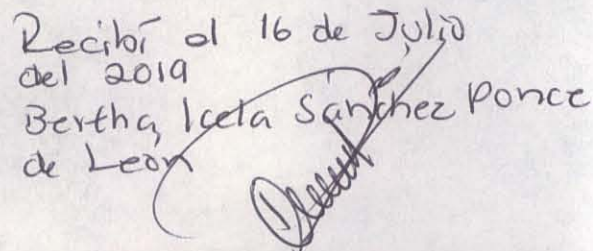 Recibí el 16 de Julio
del 2019
Bertha Icela Sánchez Ponce
de León